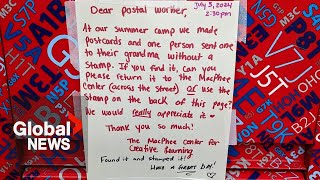 Dear postal worker,
July 3, 2024
2:30pm
At our summer camp we made
postcards and one person sent one
to their grandma without a
stamp. If you find it, can you
please return it to the MacPhee
Center (across the street) or use the
stamp on the back of this page?
We would really appreciate it
Thank you so much!
The MacPhee Center for
Creative Learning
Found it and stamped it!
Have a GREAT DAY!
Global
NEWS